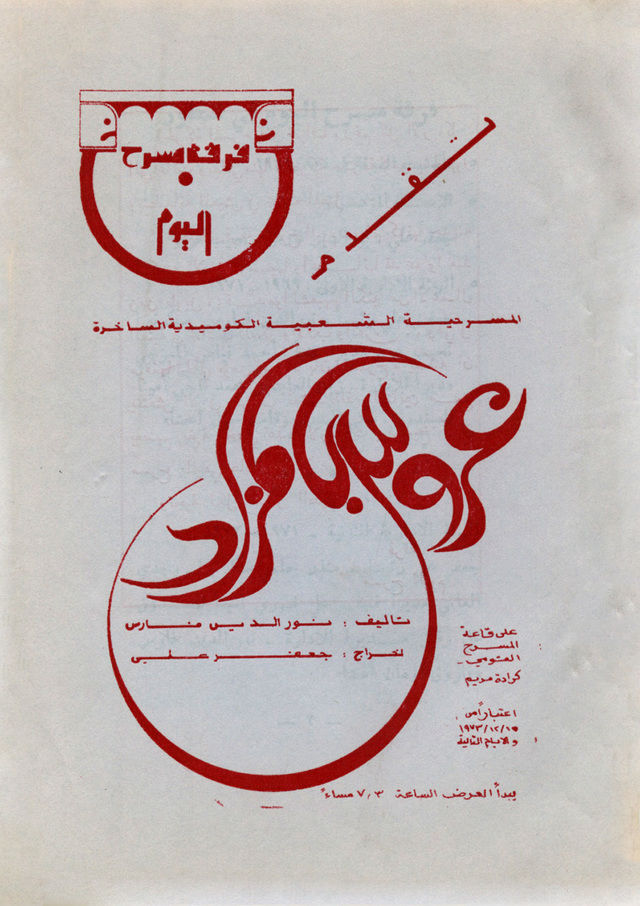 فرقة مسرح
اليوم
تقدم
المسرحية الشعبية الكوميدية الساخرة
عروس بالمزاد
تأليف : نور الدين فارس
اخراج : جعفر علي
على قاعة
المسرح
القومي -
كرادة مريم
اعتباراً من
١٩٧٣/١٢/١٥
والايام التالية
يبدأ العرض الساعة ٧,٣ مساءً